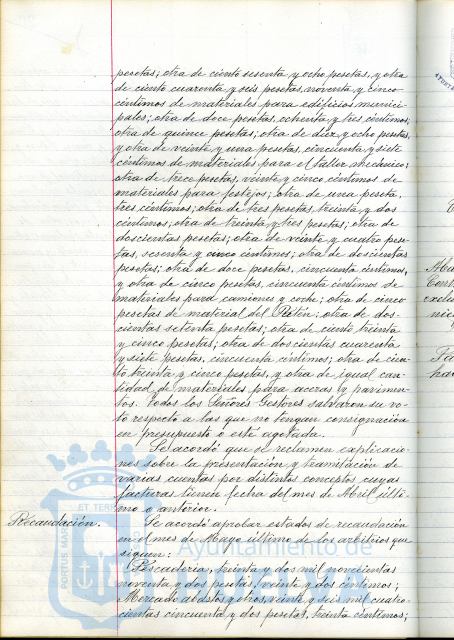 pesetas; otra de ciento sesenta y ocho pesetas, y otra
de ciento cuarenta y seis pesetas, noventa y cinco
céntimos de materiales para edificios munici-
pales; otra de doce pesetas, ochenta y tres céntimos;
otra de quince pesetas; otra de diez y ocho pesetas,
y otra de veinte y una pesetas, cincuenta y siete
céntimos de materiales para el taller mecánico;
otra de trece pesetas, veinte y cinco céntimos de
materiales para festejos; otra de una peseta,
tres céntimos; otra de tres pesetas, treinta y dos
céntimos; otra de treinta y tres pesetas; otra de
doscientas pesetas; otra de veinte y cuatro pese-
tas, sesenta y cinco céntimos; otra de doscientas
pesetas; otra de doce pesetas, cincuenta céntimos,
y otra de cinco pesetas, cincuenta céntimos de
materiales para camiones y coche; otra de cinco
pesetas de material del Retén; otra de dos-
cientas setenta pesetas; otra de ciento treinta
y cinco pesetas; otra de doscientas cuarenta
y siete pesetas, cincuenta céntimos; otra de cien-
to treinta y cinco pesetas, y otra de igual can-
tidad de materiales para aceras y pavimen-
tos. Todos los Señores Gestores salvaron su vo-
to respecto a las que no tengan consignación
en presupuesto o esté agotada.
Se acordó que se reclamen explicacio-
nes sobre la presentación y tramitación de
varias cuentas por distintos conceptos cuyas
facturas tienen fecha del mes de Abril últi-
mo o anterior.
Recaudación.
Se acordó aprobar estados de recaudación
en el mes de Mayo último de los arbitrios que
siguen:
Pescadería, treinta y dos mil novecientas
noventa y dos pesetas, veinte y dos céntimos;
Mercado abastos y otros, veinte y seis mil cuatro-
cientas cincuenta y dos pesetas, treinta céntimos;
Ayuntamiento de
PORTUS
ET TERR